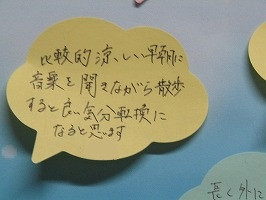 比較的涼しい早朝に
音楽を聞きながら散歩
すると良い気分転換に
なると思います
長く外に